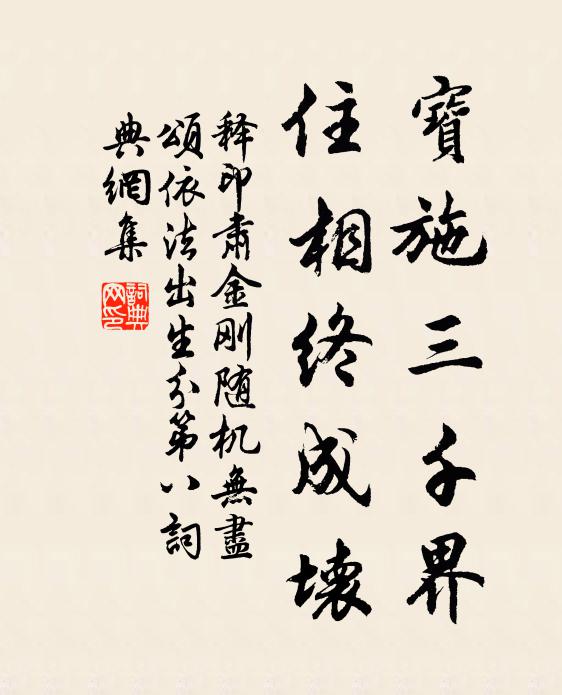 寶施三千界
住相終成壞
释印肃金刚随机無盡
頌依法出生分第八詞
典網集
詞典
网印